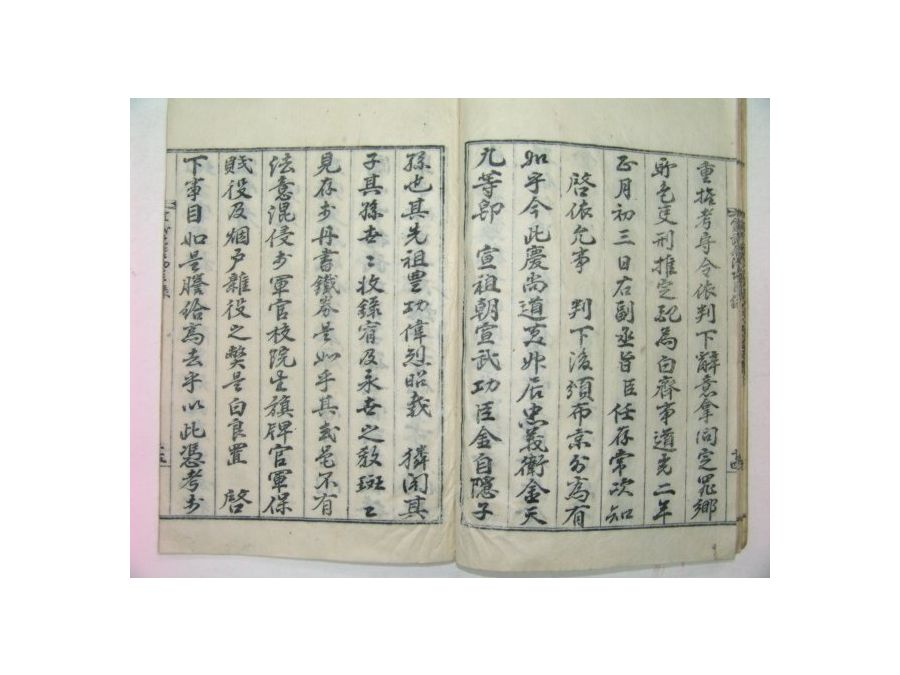 重推考亭令依判下辭意拿問定罪鄉
所色吏刑推定配為白齊事道光二年
正月初三日右副丞旨臣任存常次知
啓依允事 判下後須布京外為有
如乎今此慶尚道 居忠義衛金天
九等卽 宣祖朝宣武功臣金自隱子
孫也其先祖豊功偉烈昭載 璘閣其
子其孫世〻收錄宥及永世之敎斑〻
見存於丹書鐵券是如乎其或邑不有
法意混侵於軍官校院生旗牌官軍保
賤役及烟戶雜役之弊是白良置 啓
下事目如是謄給爲去乎以此憑考於